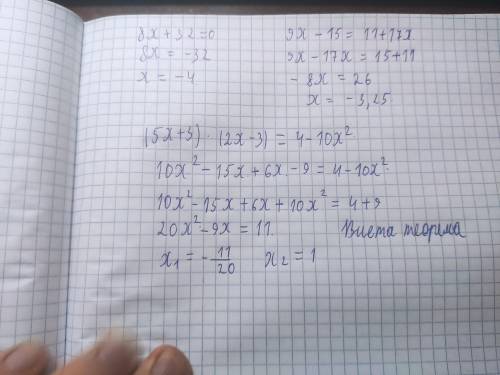 8x + 32 = 0
8x = -32
x = -4
9x - 15 = 11 + 17x
9x - 17x = 15 + 11
- 8x = 26
x = -3,25.
(5x+3) · (2x-3) = 4 - 10x²
10x² - 15x + 6x - 9 = 4 - 10x²
10x² - 15x + 6x + 10x² = 4 + 9
20x² - 9x = 11. Виета теорема
x₁ = - 11/20 x₂ = 1